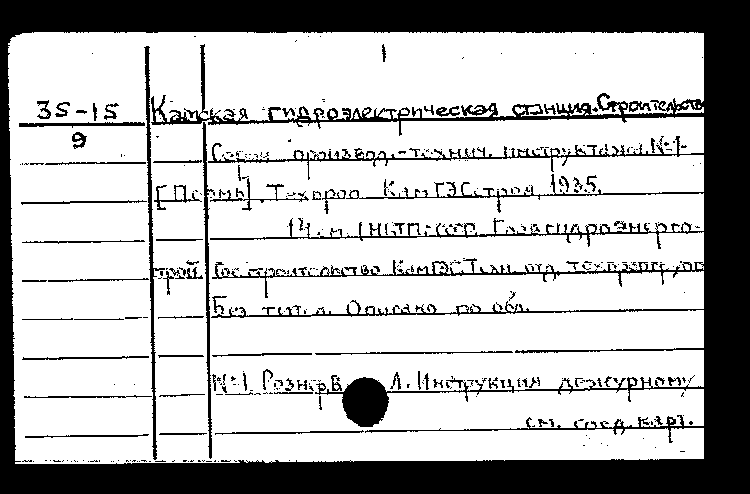 1
35-15
9
Камская гидроэлектрическая станция. Строительство
Серия производ.-технич. инструктажа. №1-
[Пермь], Техпроп КамГЭСстроя, 1935.
14 см. (НКТП СССР. Главгидроэнерго-
строй. Гос. строительство КамГЭС. Техн. отд.
Без тит. л. Описано по обл.
№1. Рознер, В. Л. Инструкция дежурному
см. след. карт.